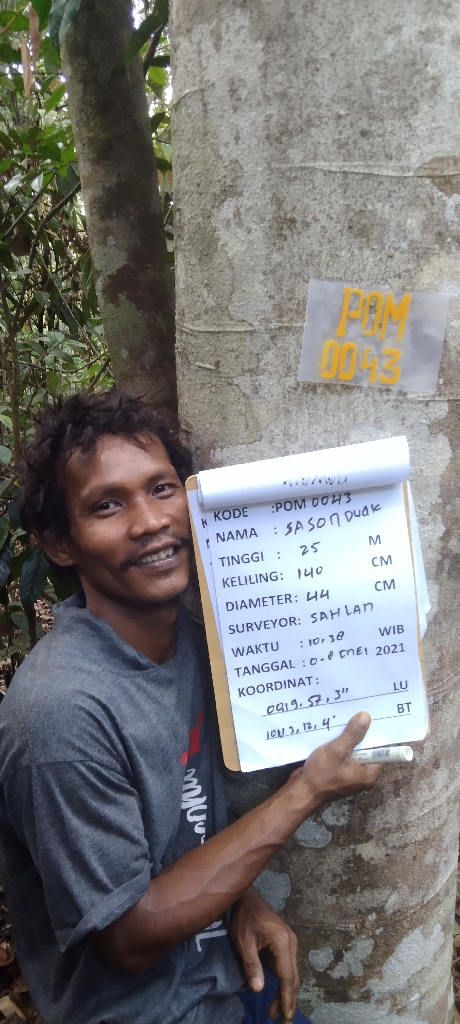 POM
0043
KODE :POM 0043
NAMA : SASON DUAK
TINGGI : 25 M
KELILING: 140 CM
DIAMETER: 44 CM
SURVEYOR: SAHLAN
WAKTU : 10.38 WIB
TANGGAL : MEI 2021
KOORDINAT:
LU
BT